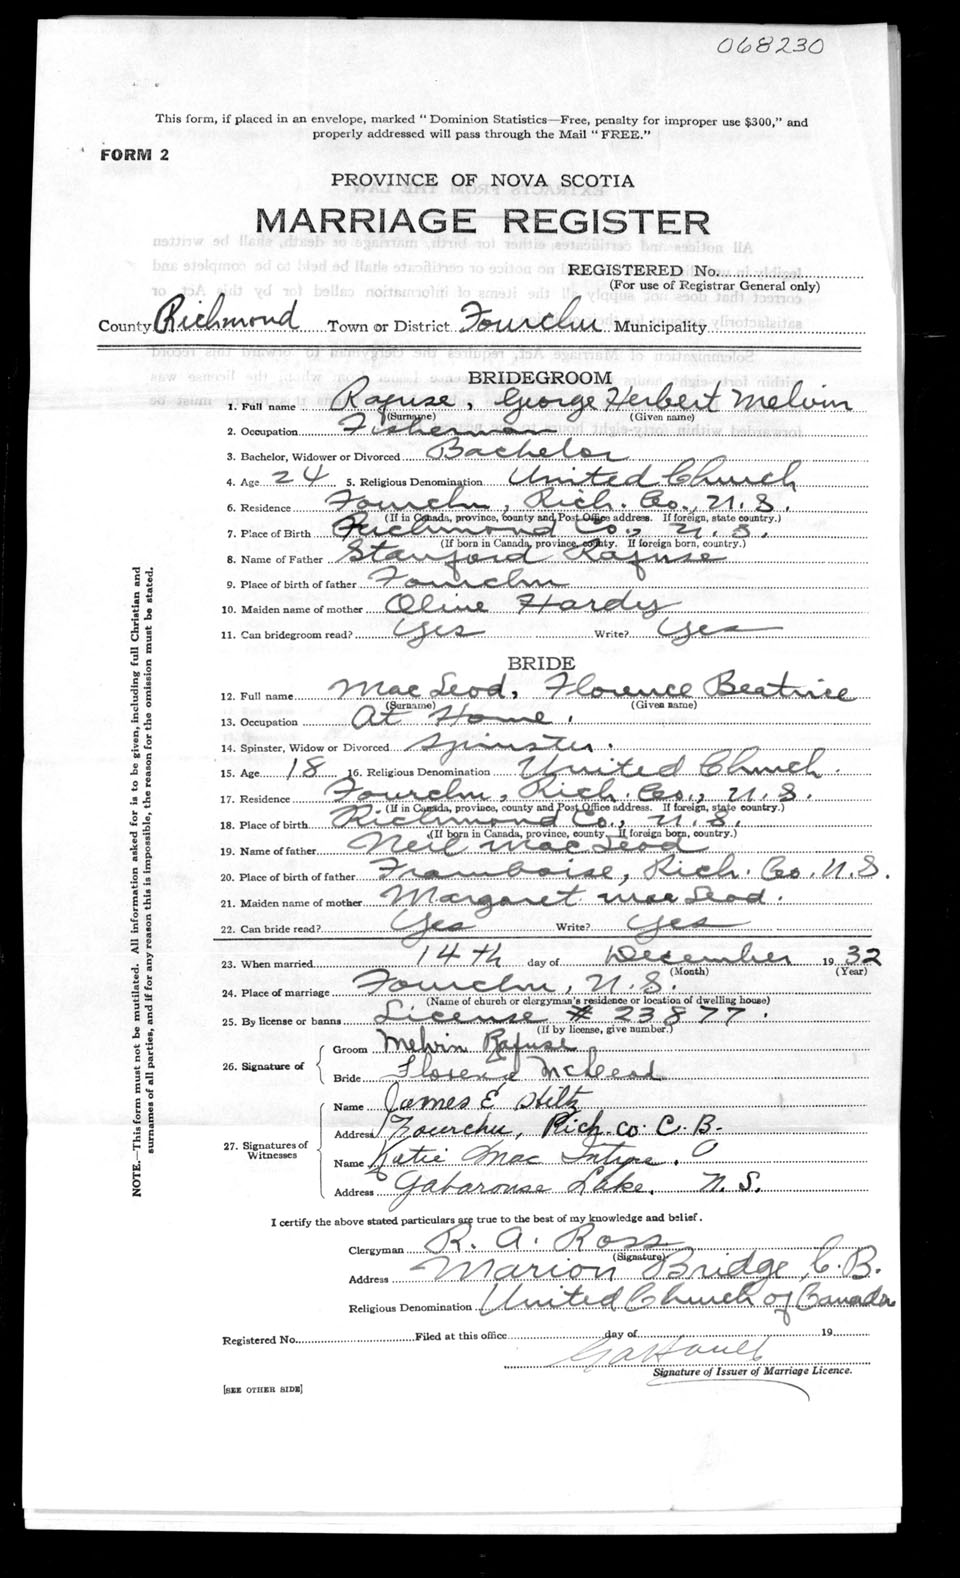 068230
This form, if placed in an envelope, marked “ Dominion Statistics—Free, penalty for improper use $300,” and
properly addressed will pass through the Mail “ FREE.”
FORM 2
PROVINCE OF NOVA SCOTIA
MARRIAGE REGISTER
REGISTERED No.
(For use of Registrar General only)
County Richmond Town or District Fourchu Municipality
BRIDEGROOM
1. Full name Rafuse, George Herbert Melvin
(Surname) (Given name)
2. Occupation Fisherman
3. Bachelor, Widower or Divorced Bachelor
4. Age 24 5. Religious Denomination United Church
6. Residence Fourchu, Rich. Co., N.S.
(If in Canada, province, county and Post Office address. If foreign, state country.)
7. Place of Birth Richmond Co., N.S.
(If born in Canada, province, county. If foreign born, country.)
8. Name of Father Stanford Rafuse
9. Place of birth of father Fourchu
10. Maiden name of mother Olive Hardy
11. Can bridegroom read? Yes Write? Yes
BRIDE
12. Full name MacLeod, Florence Beatrice
(Surname) (Given name)
13. Occupation At Home.
14. Spinster, Widow or Divorced Spinster.
15. Age 18 16. Religious Denomination United Church.
17. Residence Fourchu, Rich. Co., N.S.
(If in Canada, province, county and Post Office address. If foreign, state country.)
18. Place of birth Richmond Co., N.S.
(If born in Canada, province, county If foreign born, country.)
19. Name of father Neil MacLeod
20. Place of birth of father Framboise, Rich. Co. N.S.
21. Maiden name of mother Margaret MacLeod.
22. Can bride read? Yes Write? Yes
23. When married 14th day of December 1932
(Month) (Year)
24. Place of marriage Fourchu, N.S.
(Name of church or clergyman's residence or location of dwelling house)
25. By license or banns License # 23877.
(If by license, give number.)
26. Signature of
Groom Melvin Rafuse
Bride Florence McLeod
27. Signatures of Witnesses
Name James E Hiltz
Address Fourchu, Rich. Co. C.B.
Name Katie MacIntyre.
Address Gabarouse Lake, N.S.
I certify the above stated particulars are true to the best of my knowledge and belief.
Clergyman R. A. Ross
(Signature)
Address Marion Bridge, C.B.
Religious Denomination United Church of Canada
Registered No. Filed at this office day of 19
Signature of Issuer of Marriage Licence.
[SEE OTHER SIDE]
NOTE.—This form must not be mutilated. All information asked for is to be given, including full Christian and
surnames of all parties, and if for any reason this is impossible, the reason for the omission must be stated.